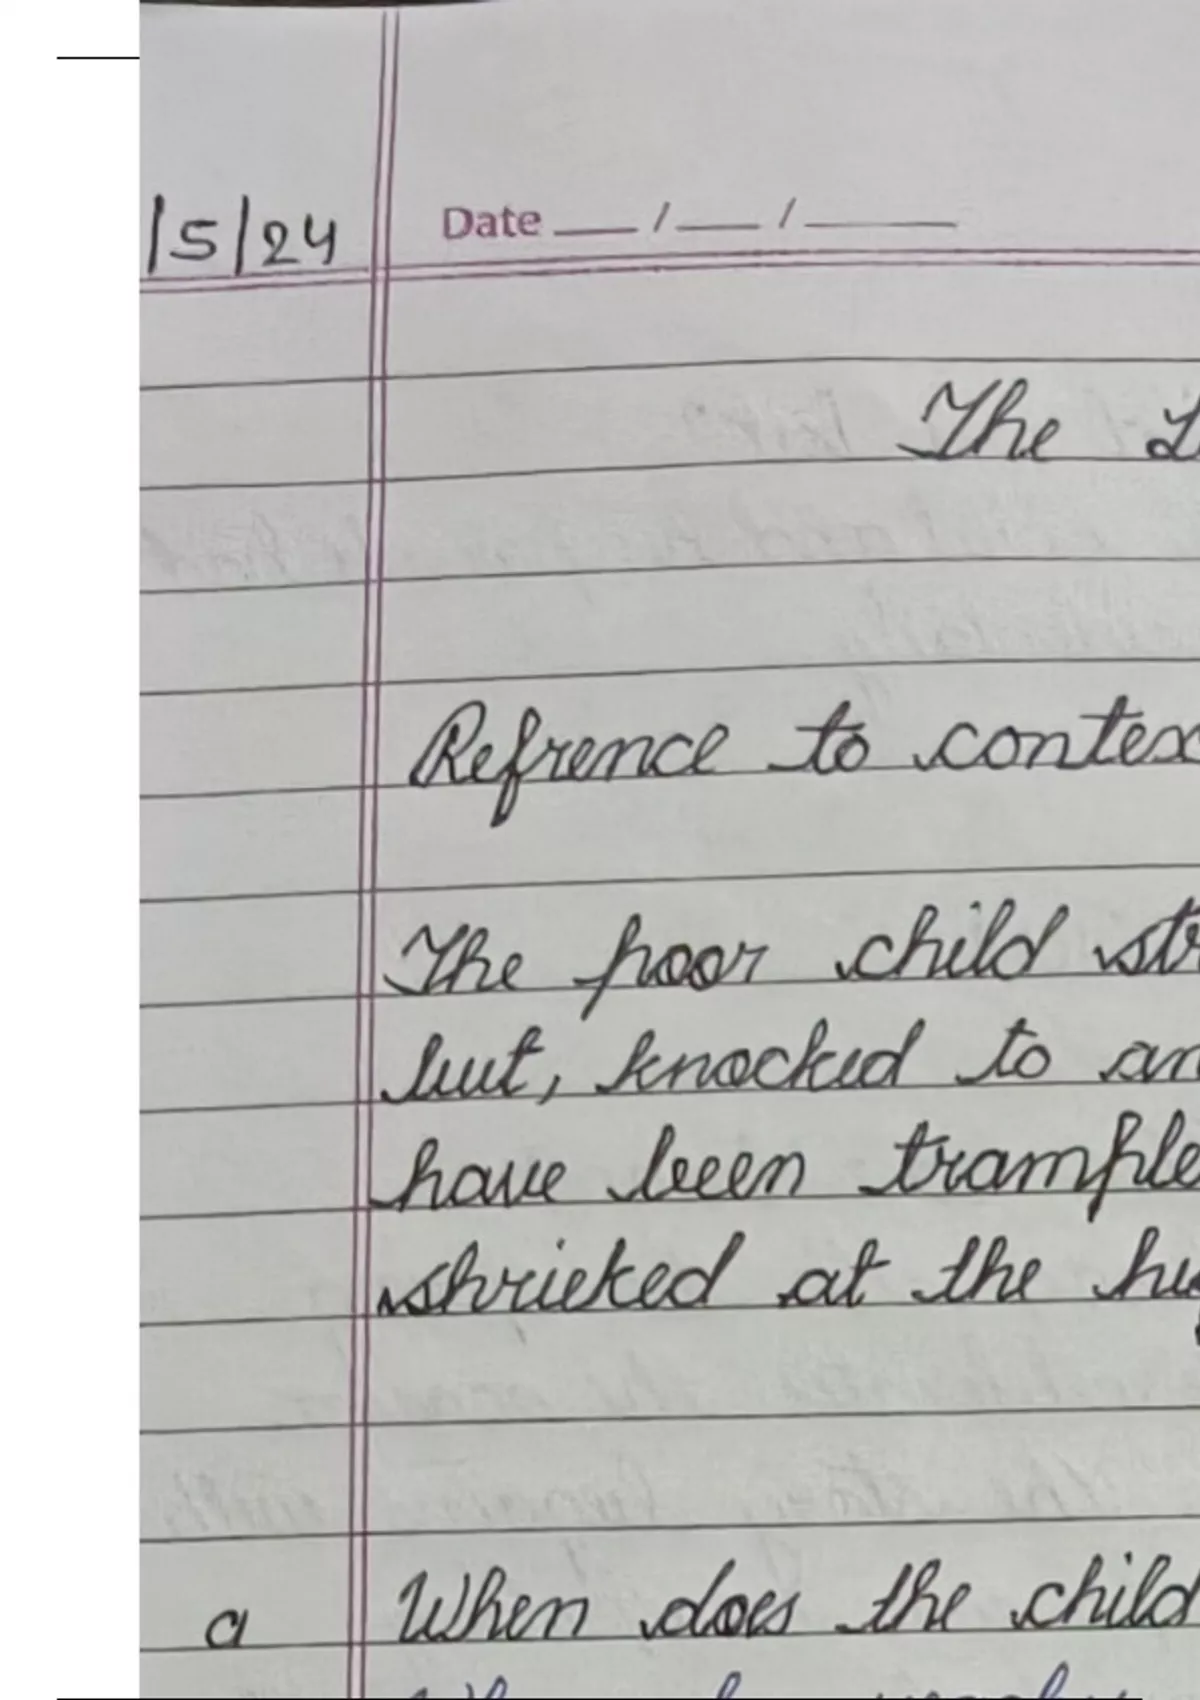 /5/24
Date __/__/____
The
Refrence to contex
The poor child st
but, knocked to an
have been trample
shrieked at the
a When does the child